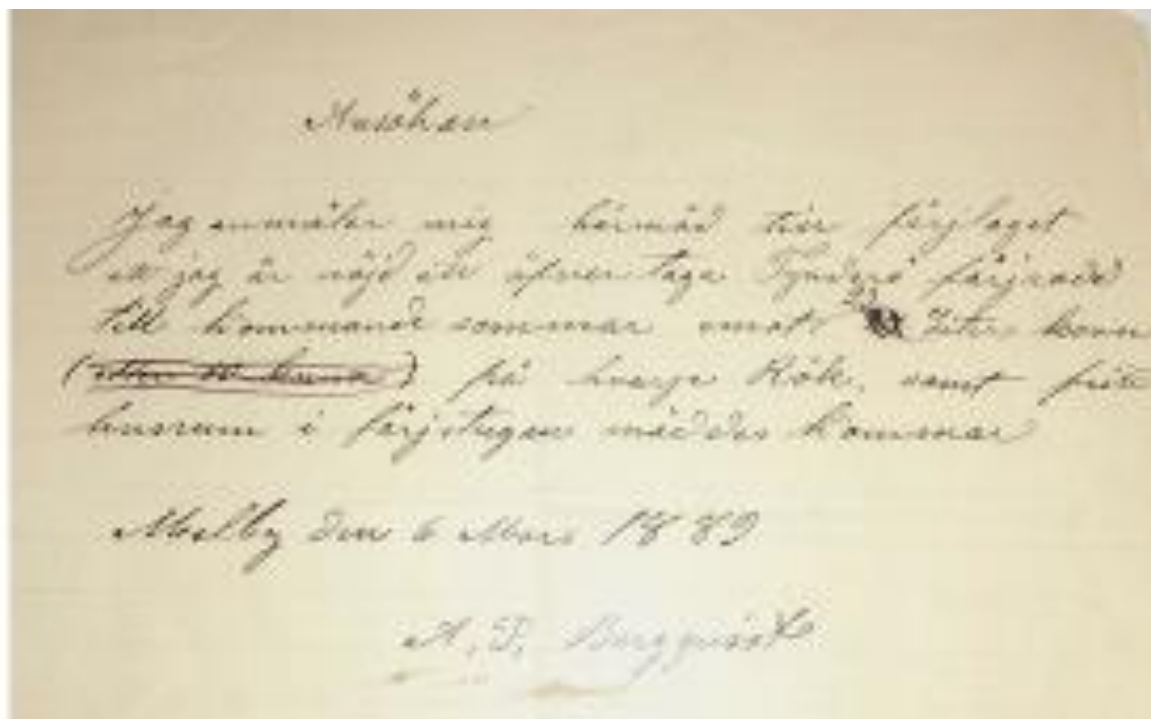 Ansökan
Jag anmäler mig härmed till färjlaget
att jag är nöjd att öfvertaga Tynderö färjrodd
till kommande sommar emot Liter korn
på hvarje Rök, samt fritt
husrum i färjstugan med des kammar
Melby den 6 Mars 1889
A. P. Bergquist